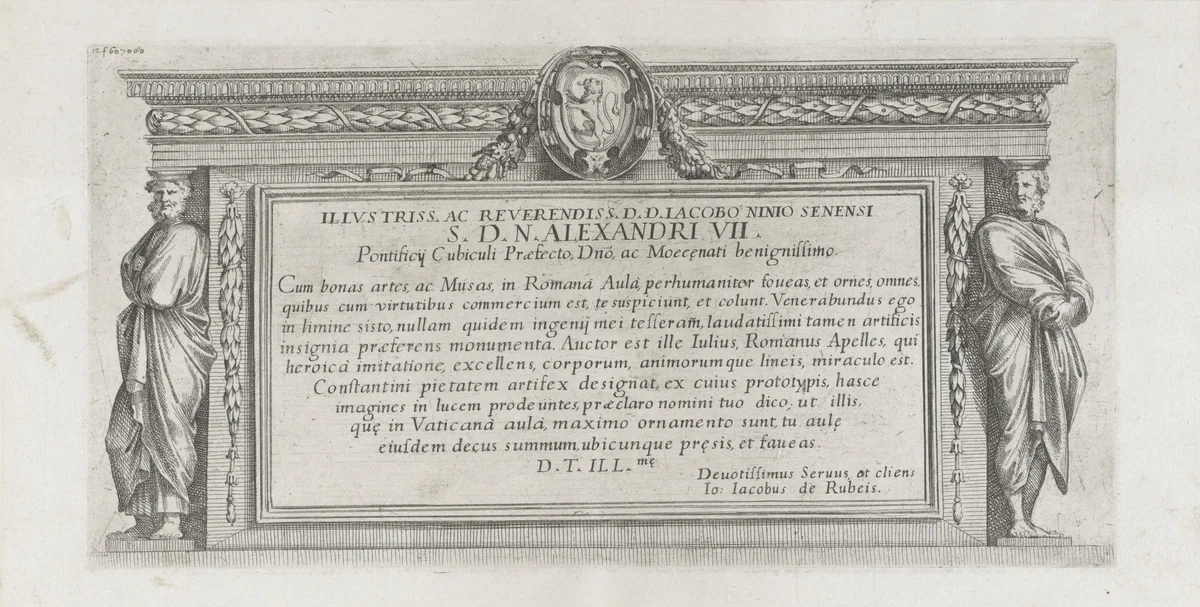 12f607060
ILLVSTRISS. AC REVERENDISS. D. D. IACOBO NINIO SENENSI
S. D. N. ALEXANDRI VII.
Pontificij Cubiculi Præfecto, Dnõ, ac Moecęnati benignissimo.
Cum bonas artes, ac Musas, in Romanâ Aulâ, perhumaniter foueas, et ornes, omnes,
quibus cum virtutibus commercium est, te suspiciunt, et colunt. Venerabundus ego
in limine sisto, nullam quidem ingenij mei tesseram, laudatissimi tamen artificis
insignia præferens monumenta. Auctor est ille Iulius, Romanus Apelles, qui
heroicâ imitatione, excellens, corporum, animorumque lineis, miraculo est.
Constantini pietatem artifex designat, ex cuius prototypis, hasce
imagines in lucem prodeuntes, præclaro nomini tuo dico, ut illis,
quę in Vaticanâ aulâ, maximo ornamento sunt, tu aulę
eiusdem decus summum, ubicunque pręsis, et faueas.
D. T. ILL.mę
Deuotissimus Seruus, et cliens
Io: Iacobus de Rubeis.